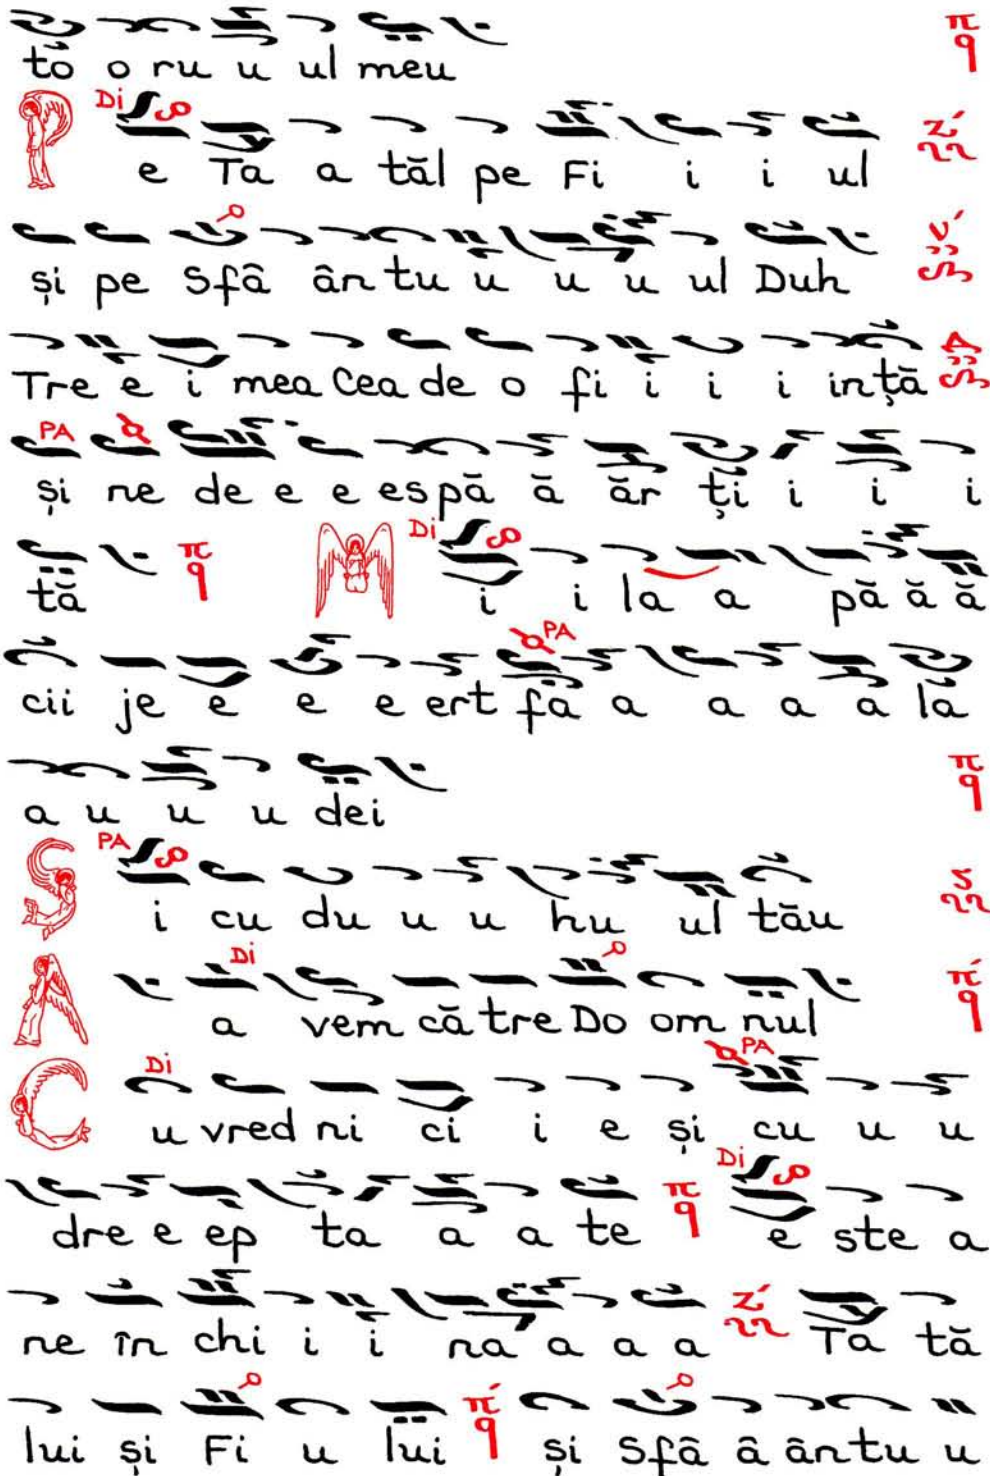 tŏ o ru u ul meu π q
P Di e Ta a tăl pe Fi i i ul Z΄
și pe Sfâ ân tu u u u ul Duh
Tre e i mea Cea de o fi i i i in ță Δ
PA și ne de e e es pă ă ăr ți i i i
tă π q M Di i i la a pă ă ă
cii je e e e ert fă PA a a a ă lă
a u u u dei π q
S PA i cu du u u hu ul tău
A a Di vem că tre Do om nul π΄ q
C Di u vred ni ci i e și cu PA u u
dre e ep ta a a te π q Di e ste a
ne în chi i i na a a a Z΄ Ta tă
lui și Fi u lui π΄ q și Sfâ â ân tu u